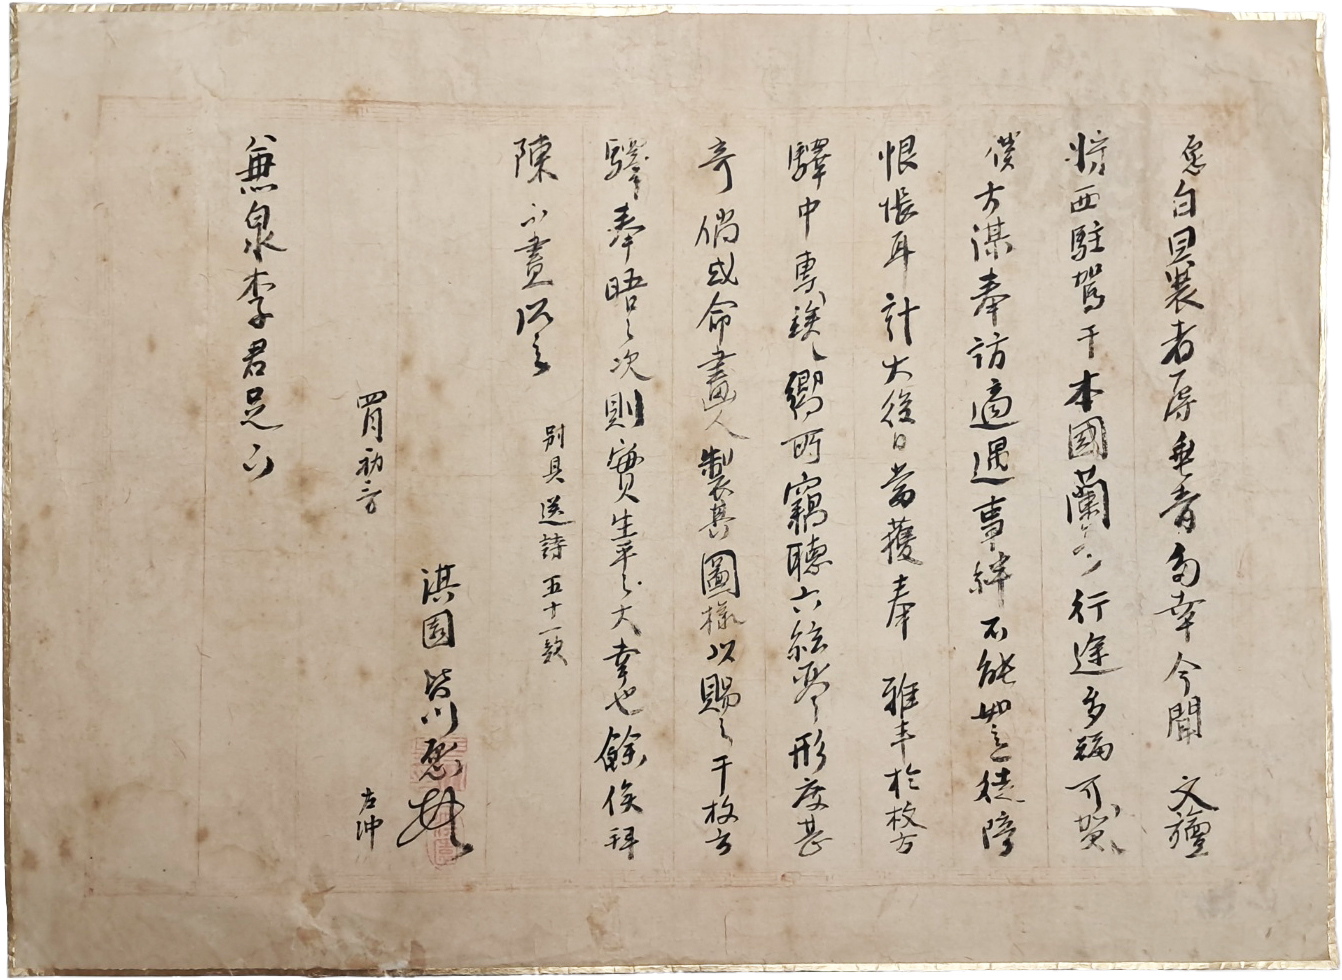 愿白曩者辱垂青多幸今聞 文旌
將西駐駕于本國蘭 行途多福可賀
僕方謀奉訪適遇事絆不能如意徒降
恨悵耳計大後日當獲奉 雅丰於枚方
驛中專俟々嚮所竊聽六絃琴形度甚
奇倘或命畫人製其圖樣以賜之于枚方
驛奉晤之次則實生平之大幸也餘俟拜
陳不盡以之
別具送詩五十一款
淇園皆川愿拜
四月初二
左沖
兼泉李君足下